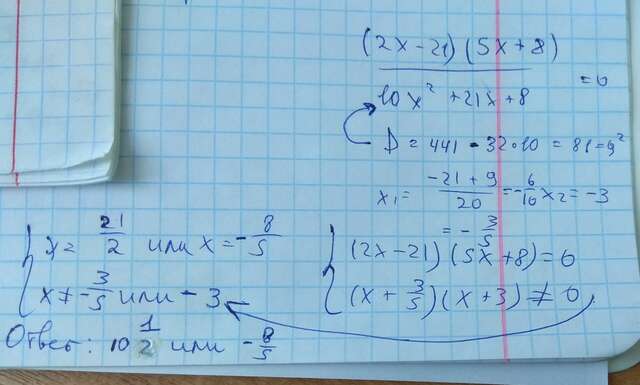 (2x-21)(5x+8)
10x² + 21x + 8
= 0
D = 441 - 32·10 = 81 = 9²
x₁ = -21 + 9 / 20 = -6/10 x₂ = -3
= -3/5
(2x-21)(5x+8) = 0
(x + 3/5)(x+3) ≠ 0
x = 21/2 или x = -8/5
x ≠ -3/5 или -3
Ответ: 10 1/2 или -8/5